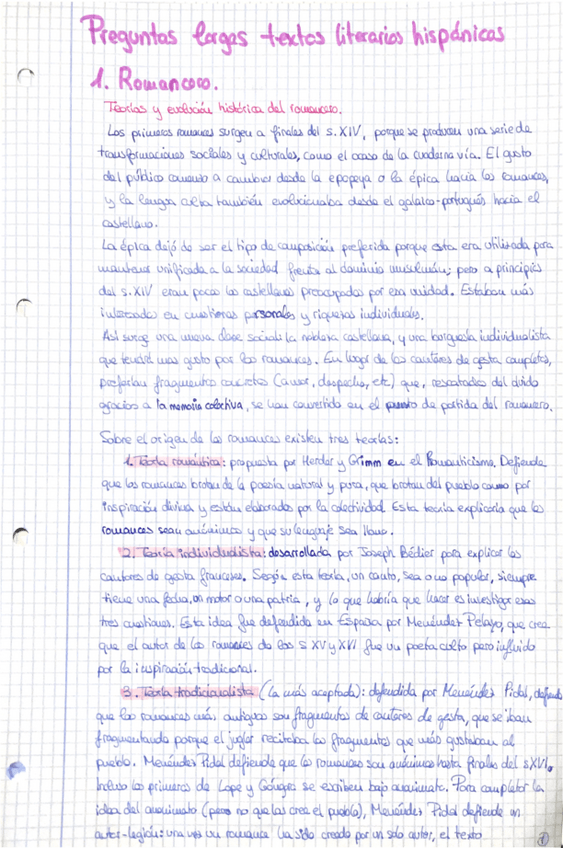 Preguntas largas textos literarios hispánicos
1. Romancero.
Teorías y evolución histórica del romancero.
Los primeros romances surgen a finales del s. XIV, porque se producen una serie de
transformaciones sociales y culturales, como el ocaso de la cuaderna vía. El gusto
del público comenzó a cambiar desde la epopeya o la épica hacia los romances,
y la lengua culta también evolucionaba desde el galaico-portugués hacia el
castellano.
La épica dejó de ser el tipo de composición preferida porque esta era utilizada para
mantener unificada a la sociedad frente al dominio musulmán; pero a principios
del s. XIV eran pocos los castellanos preocupados por esa unidad. Estaban más
interesados en cuestiones personales y riquezas individuales.
Así surge una nueva clase social: la nobleza castellana, y una burguesía individualista
que tendrá mas gusto por los romances. En lugar de los cantares de gesta completos,
preferían fragmentos concretos (amor, despecho, etc) que, rescatados del olvido
gracias a la memoria colectiva, se han convertido en el punto de partida del romancero.
Sobre el origen de los romances existen tres teorías:
1. Teoría romántica: propuesta por Herder y Grimm en el Romanticismo. Defiende
que los romances brotan de la poesía natural y pura, que brotan del pueblo como por
inspiración divina y están elaborados por la colectividad. Esta teoría explicaría que los
romances sean anónimos y que su lenguaje sea llano.
2. Teoría individualista: desarrollada por Joseph Bédier para explicar los
cantares de gesta franceses. Según esta teoría, un canto, sea o no popular, siempre
tiene una fecha, un motor o una patria, y lo que habría que hacer es investigar esas
tres cuestiones. Esta idea fue defendida en España por Menéndez Pelayo, que cree
que el autor de los romances de los s XV y XVI fue un poeta culto pero influido
por la inspiración tradicional.
3. Teoría tradicionalista (la más aceptada): defendida por Menéndez Pidal, defiende
que los romances más antiguos son fragmentos de cantares de gesta, que se iban
fragmentando porque el juglar recitaba los fragmentos que más gustaban al
pueblo. Menéndez Pidal defiende que los romances son anónimos hasta finales del s XVI.
Incluso los primeros de Lope y Góngora se escriben bajo anonimato. Para completar la
idea del anonimato (pero no que los cree el pueblo), Menéndez Pidal defiende un
autor-legión: una vez un romance ha sido creado por un solo autor, el texto
1